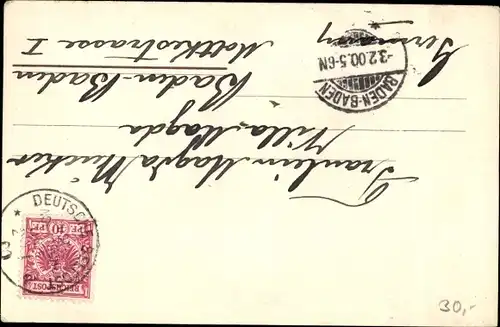 Fräulein Magda Mücker
Villa Magda
Baden-Baden
Moltkestrasse I
Germany
BADEN-BADEN
-3.2.00.5-6N
DEUTSCHE
10 PF. 10
REICHSPOST
30,-